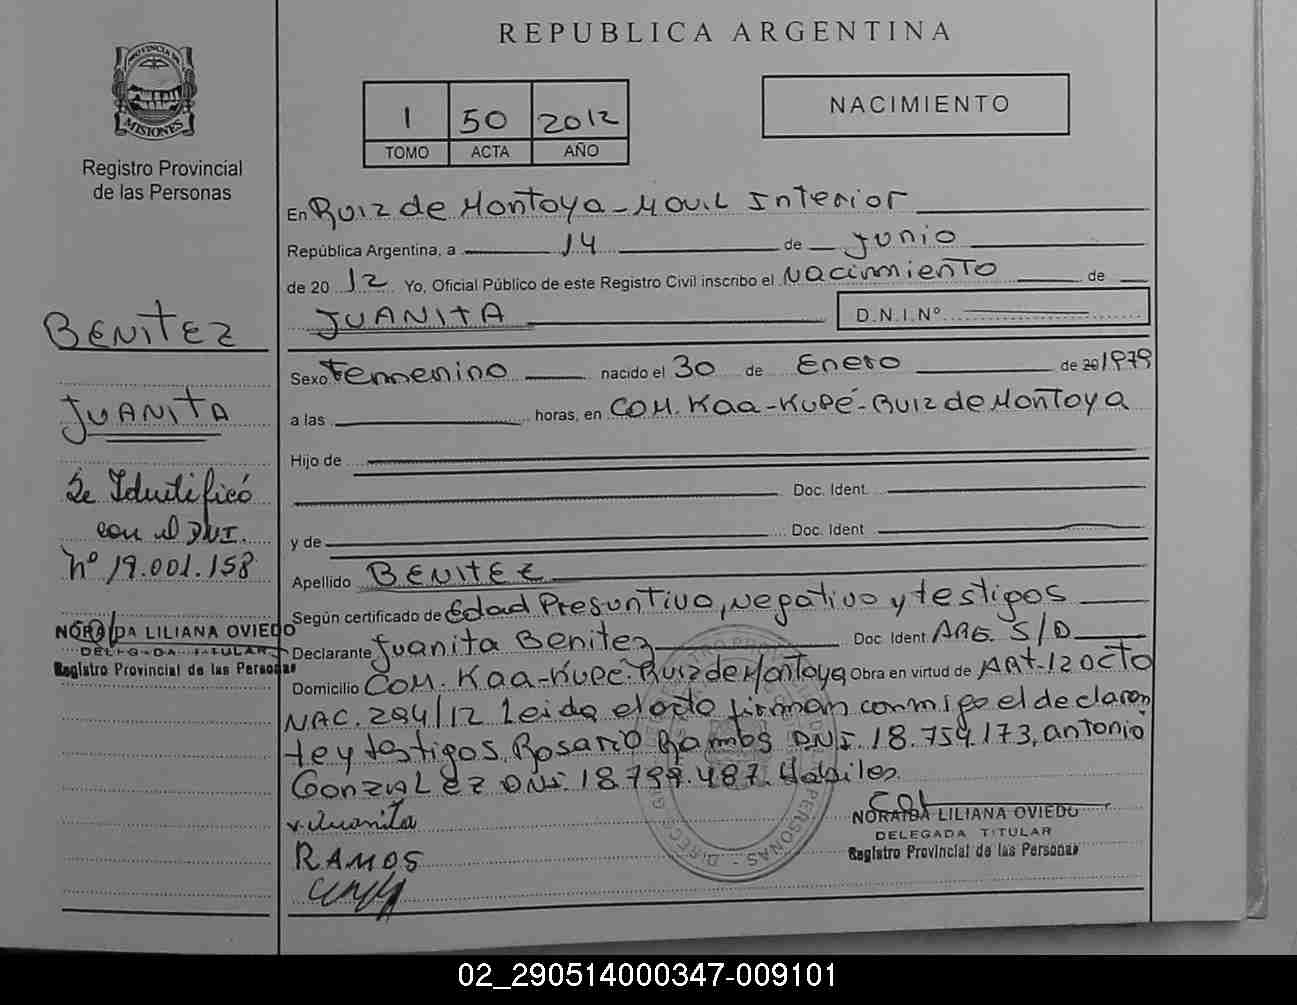 REPUBLICA ARGENTINA
PROVINCIA DE
MISIONES
Registro Provincial
de las Personas
1 50 2012
TOMO ACTA AÑO
NACIMIENTO
En Ruiz de Montoya - Movil Interior
República Argentina, a 14 de Junio
de 20 12 Yo, Oficial Público de este Registro Civil inscribo el Nacimiento de
JUANITA D.N.I.Nº
Sexo Femenino nacido el 30 de Enero de 20 1979
a las horas, en COM. Kaa-Kupé-Ruiz de Montoya
Hijo de
Doc. Ident.
y de Doc. Ident
Apellido BENITEZ
Según certificado de Edad Presuntiva, negativo y testigos
Declarante Juanita Benitez Doc. Ident. ARG. S/D
Domicilio COM. Kaa-Kupé-Ruiz de Montoya Obra en virtud de Art-12 Dcto
NAC. 294/12 Leida el acto firman conmigo el declaran
te y testigos. Rosario Ramos DNI. 18.759.173, antonio
Gonzalez DNI. 18.799.487. Habiles.
v. Juanita
RAMOS
NORAIDA LILIANA OVIEDO
DELEGADA TITULAR
Registro Provincial de las Personas
BENITEZ
JUANITA
Se Identificó
con el DNI.
Nº 19.001.158
NORAIDA LILIANA OVIEDO
DELEGADA TITULAR
Registro Provincial de las Personas
02_290514000347-009101